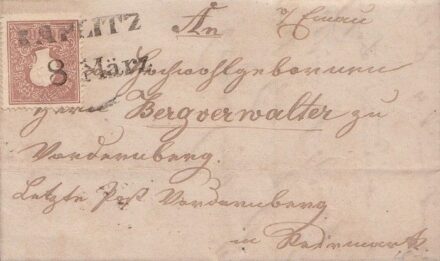 KAPLITZ
8 März
An
Hochwohlgebornen
Herrn Bergverwalter zu
Vordernberg.
Letzte Post Vordernberg
in